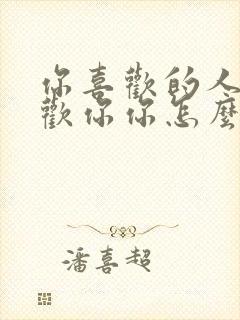 你喜歡的人
歡你你怎麼
潘喜超